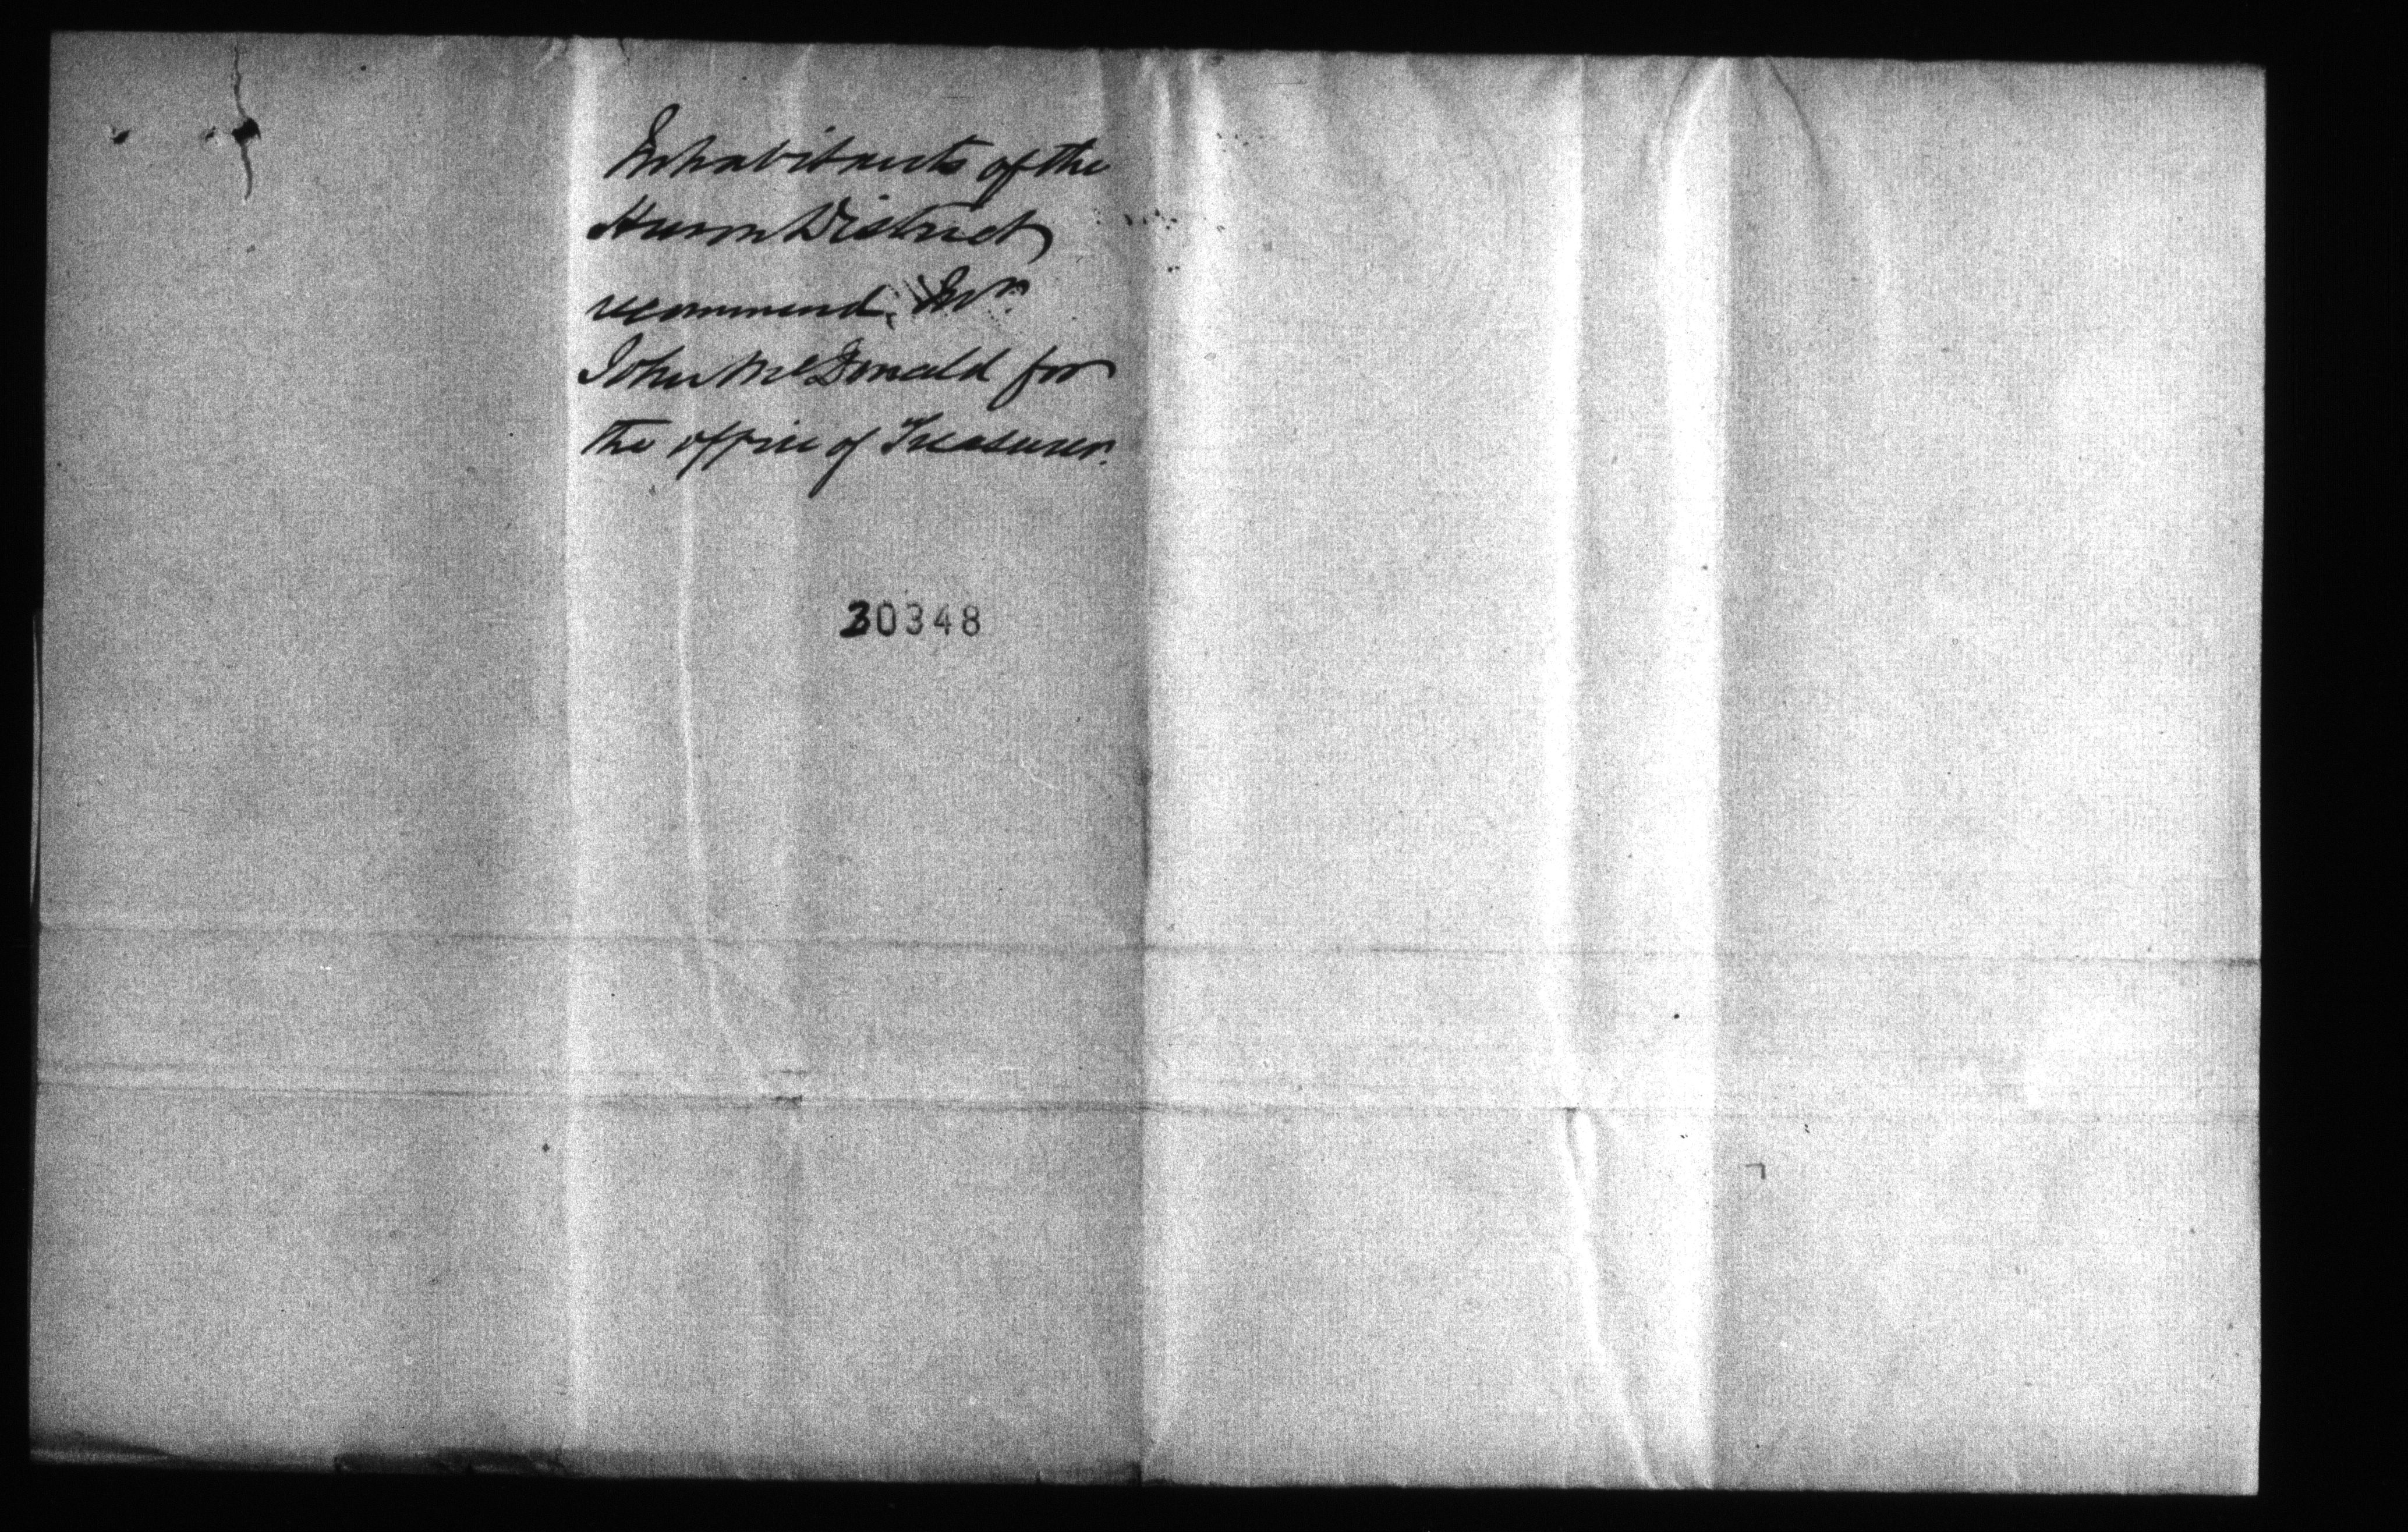 Inhabitants of the
Huron District
recommend
John McDonald for
the office of Treasurer.
30348